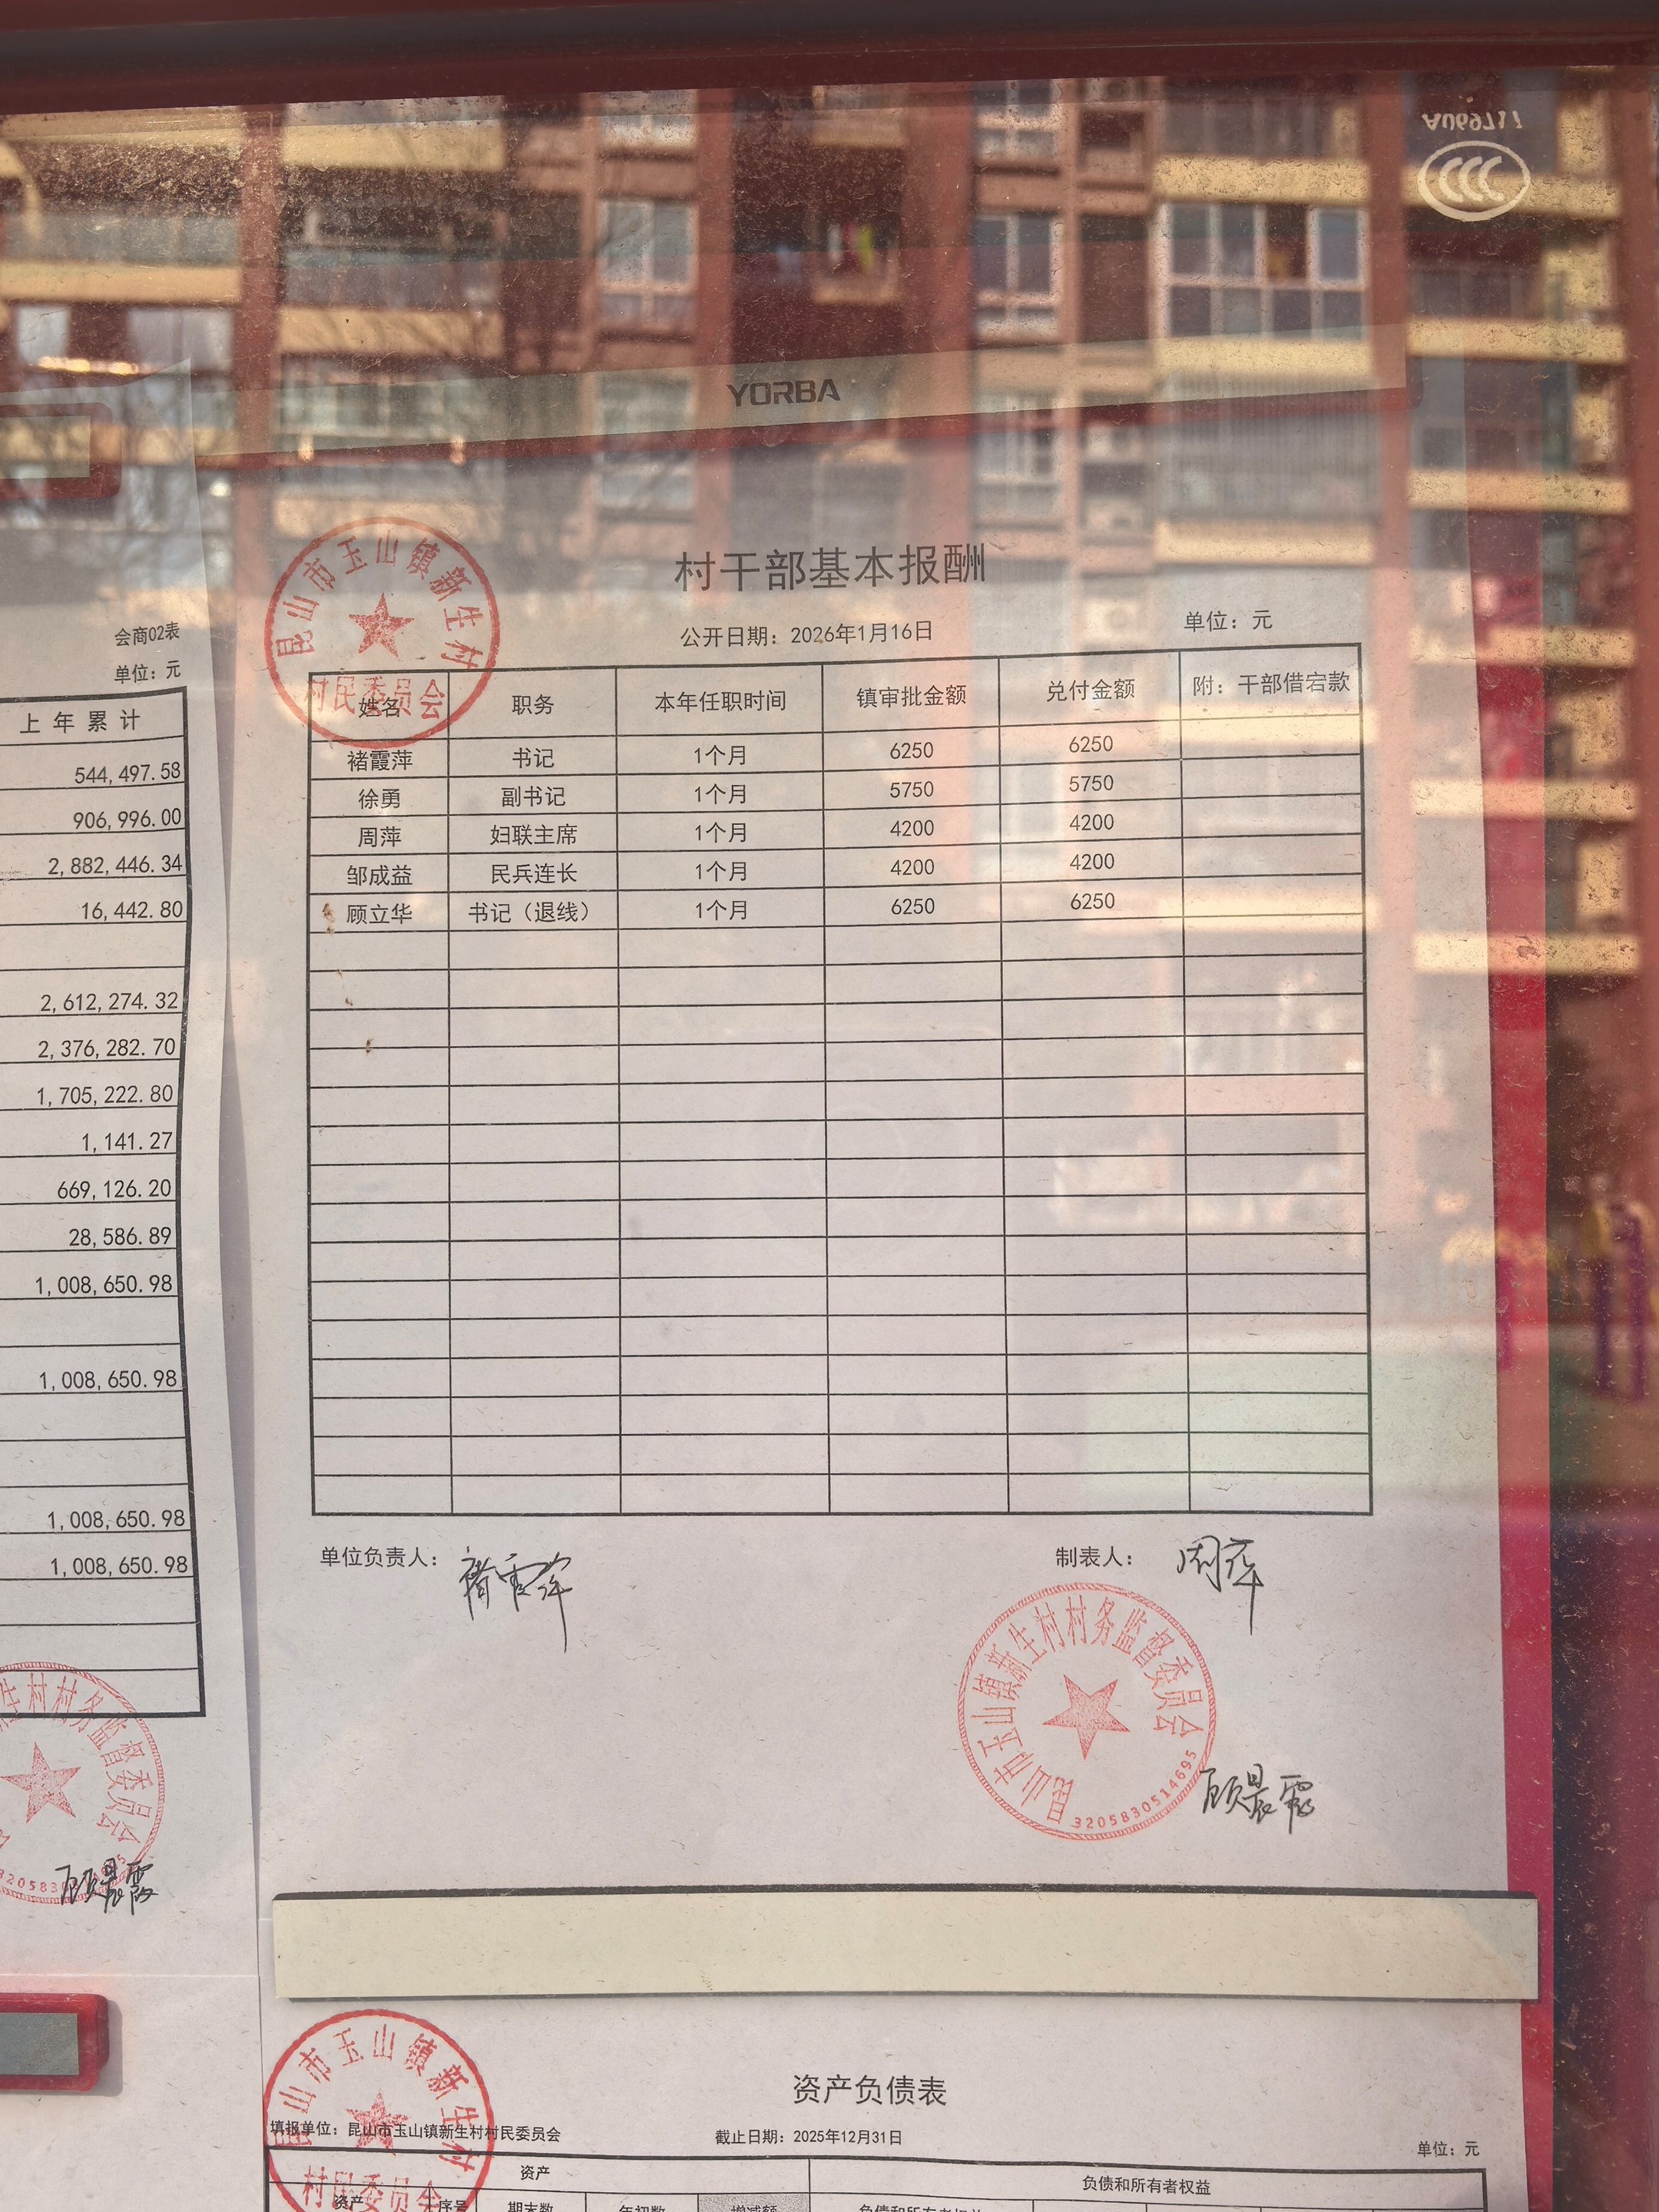 AU69717
CCC
YORBA
会商02表
单位：元
上年累计
544,497.58
906,996.00
2,882,446.34
16,442.80
2,612,274.32
2,376,282.70
1,705,222.80
1,141.27
669,126.20
28,586.89
1,008,650.98
1,008,650.98
1,008,650.98
1,008,650.98
生村村务监督委员会
顾晨霞
昆山市玉山镇新生村
村民委员会
村干部基本报酬
公开日期：2026年1月16日
单位：元
姓名 职务 本年任职时间 镇审批金额 兑付金额 附：干部借宕款
褚霞萍 书记 1个月 6250 6250
徐勇 副书记 1个月 5750 5750
周萍 妇联主席 1个月 4200 4200
邹成益 民兵连长 1个月 4200 4200
顾立华 书记（退线） 1个月 6250 6250
单位负责人：褚霞萍
制表人：周萍
昆山市玉山镇新生村村务监督委员会
3205830514695
顾晨霞
昆山市玉山镇新生村
村民委员会
资产负债表
填报单位：昆山市玉山镇新生村村民委员会
截止日期：2025年12月31日
单位：元
资产 负债和所有者权益
资产 序号 期末数 年初数 增减额 负债和所有者权益